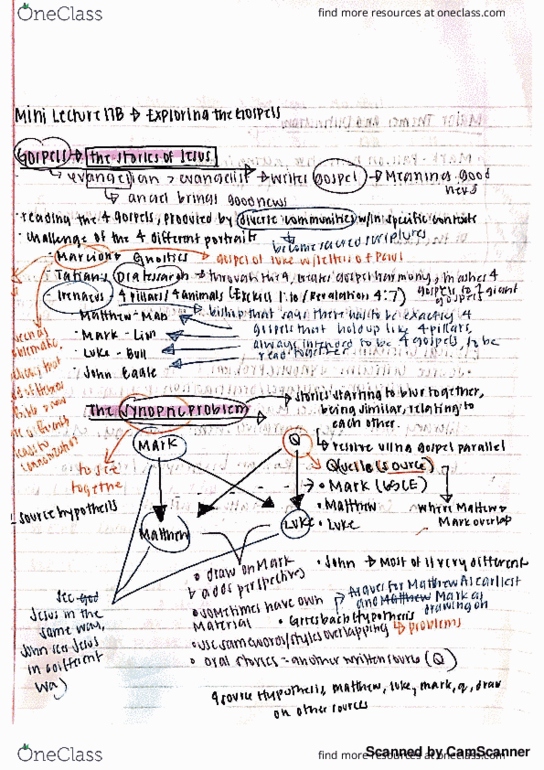 OneClass
find more resources at oneclass.com
Mini Lecture 17B → Exploring the Gospels
Gospels → the stories of Jesus
evangelion > evangelist → writes gospel → Meaning good news
↳ angel brings good news
· reading the 4 gospels, produced by diverse communities w/in specific contexts
· challenge of the 4 different portraits
↳ become sacred scriptures
- Marcion + Gnostics → gospel of luke w/letters of Paul
- Tatian's Diatessaron → through the 4, creates gospel harmony, mashes 4 gospels to 1 giant gospels
- Irenaeus - 4 pillars/4 animals (Ezekiel 1:10/Revalation 4:7)
Matthew - Man
Mark - Lion
Luke - Bull
John Eagle
bishop that says there has to be exactly 4
gospels that hold up like 4 pillars,
always intended to be 4 gospels, to be
read together
The synoptic problem
→ stories starting to blur together,
being similar, relating to
each other.
to see
together
↳ resolve using gospel parallel
Mark
Q
→ Quelle (source)
· Mark (65CE)
· Matthew
· Luke
where Matthew +
Mark overlap
- source hypothesis
Matthew
Luke
· John → most of it very different
· draw on Mark
↳ adds perspective
· sometimes have own
Material
· use same words/styles overlapping
· oral stories - another written source (Q)
· Griesbach Hypothesis
→ argues for Matthew as earliest
and Matthew Mark as
drawing on
↳ problems
see God
Jesus in the
same way,
John sees Jesus
in a different
way
4 source Hypothesis, matthew, luke, mark, q, draw
on other sources
OneClass
find more resources at oneclass.com
Scanned by CamScanner